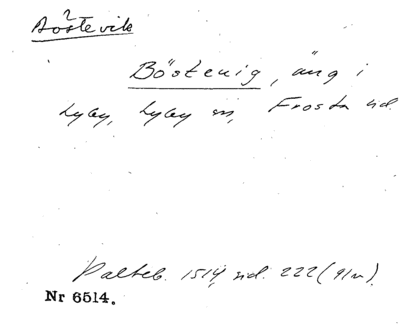 ?
Böstevik
Böstenig, äng i
Lyby, Lyby sn, Frosta hd.
Palteb. 1514, sid. 222 (91n).
Nr 6514.